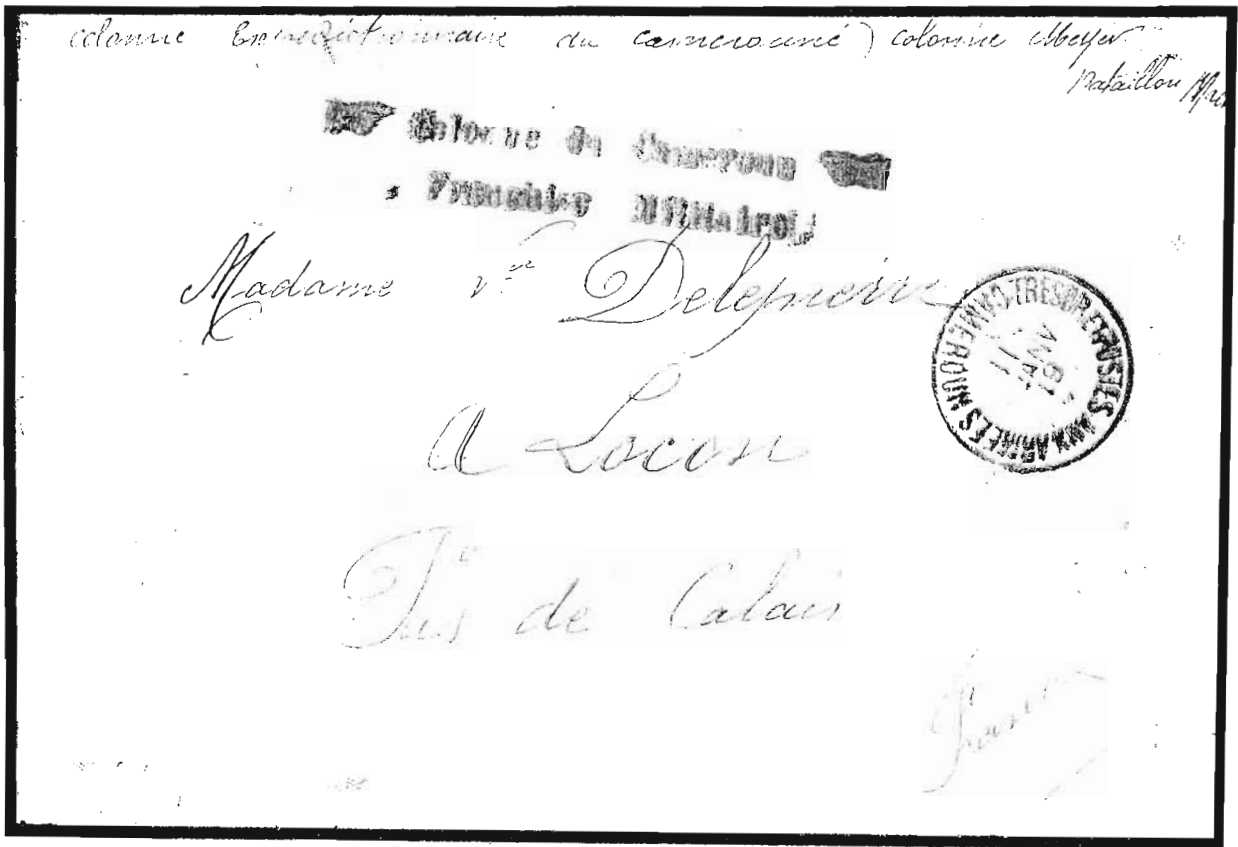 colonne Expedictionnaire du camerouné) colonne Meyer
Bataillon
Colonne du Cameroun
Franchise Militaire
Madame Vve Delepierre
TRESOR ET POSTES AUX ARMEES CAMEROUN
11
JANV
a Locon
Pas de Calais